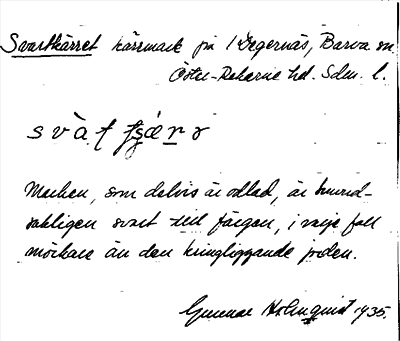 Svartkärret kärrmark på 1 Segernäs, Barva sn
Öster-Rekarne hd. Sdm. l.
svàt̩ ʃʂæ̀r̠ɘ
Marken, som delvis är odlad, är huvud-
sakligen svart till färgen, i varje fall
mörkare än den kringliggande jorden.
Gunnar Holmquist 1935.